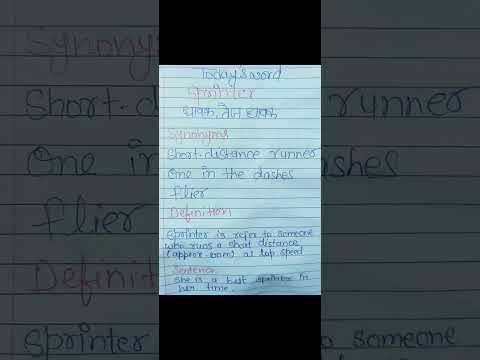 Today's word
Sprinter
धावक, तेज धावक
Synonyms
Short-distance runner
One in the dashes
flier
Definition
Sprinter is refer to someone
who runs a short distance
at top speed
Sentence
She is a best sprinter in
her time.